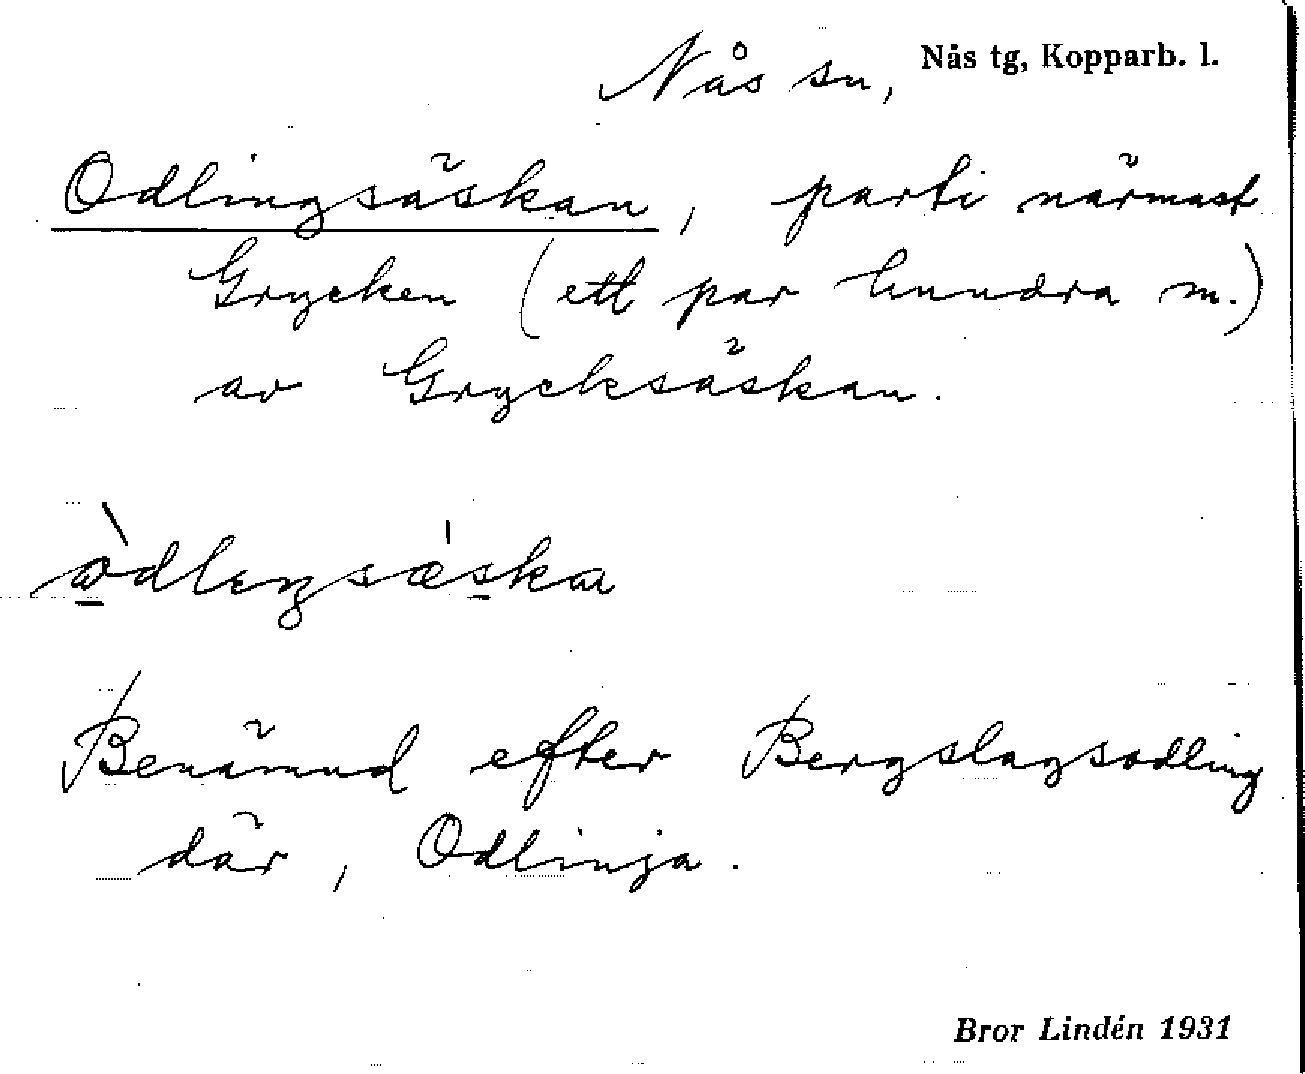 Nås sn, Nås tg, Kopparb. l.
Odlingsäskan, parti närmast
Grycken (ett par hundra m.)
av Grycksäskan.
òdleŋsæ̍ska
Benämnd efter Bergslagsodling
där, Odlinja.
Bror Lindén 1931